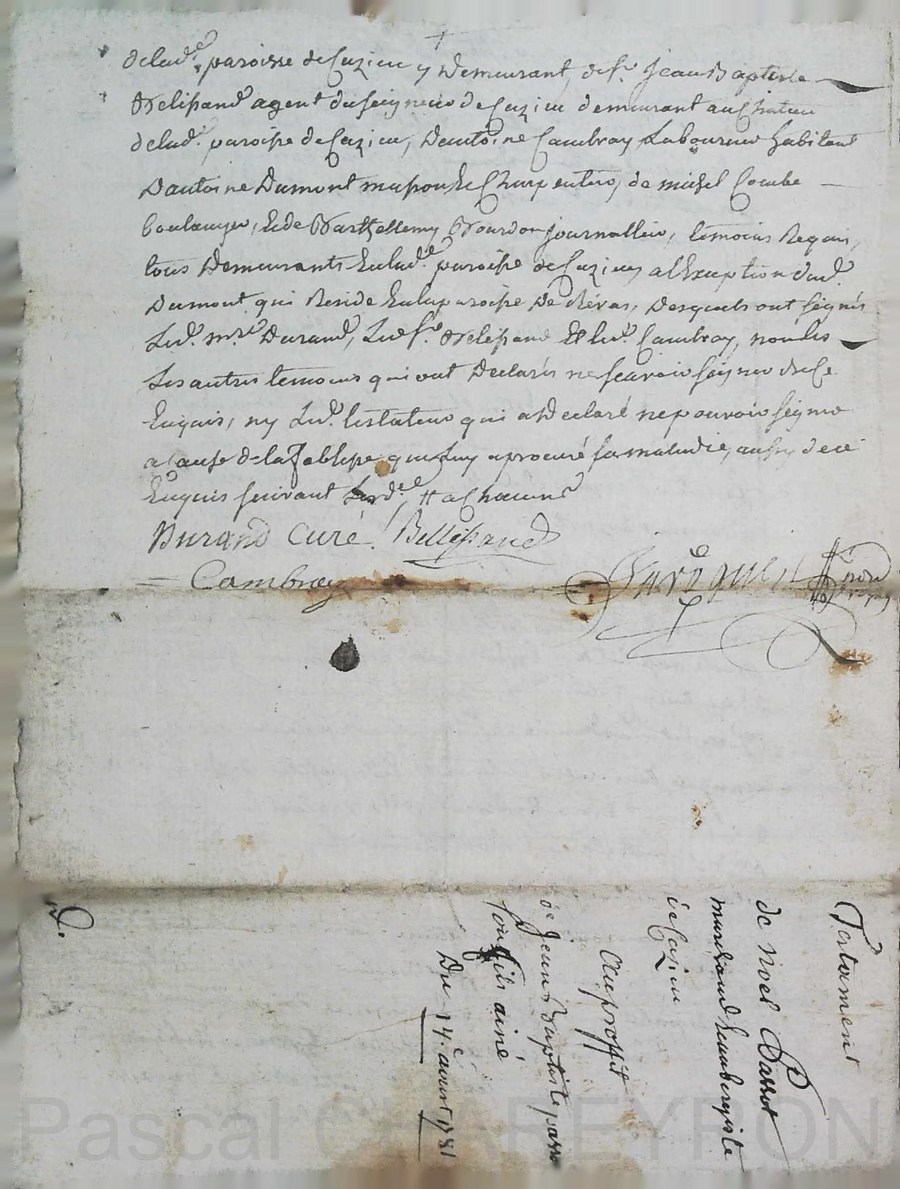 delad.e paroisse de Cuzieu y demeurant, de s.r Jean Baptiste
Belissand agent du seigneur de Cuzieu demeurant au Chateau
delad.e paroisse de Cuzieu, d'antoine Cambray Laboureur habitant
d'antoine Dumont masson & Charpentier, de michel Combe
boulanger, & de Barthellemy Bourdon journallier, temoins Requis,
tous demeurants en lad.e paroisse de Cuzieu, a lException dud.
Dumont qui Reside en la paroisse de Rivas, desquels ont signés
Led. m.re Durand, Led. s.r Belissand Et led. Cambray, non les
Les autres temoins qui ont declarés ne scavoir signer de Ce
Enquis, ny Led. testateur qui a declaré ne pouvoir signer
a cause de la foiblesse que luy a procuré sa maladie, aussy de ce
Enquis suivant Lord.ce # a Chacune
Durand Curé. Bellissand
Cambray
Testament
de Noel Passot
marchand & aubergiste
de Cuzieu
Au proffit
de Jean Baptiste passot
son fils ainé
Du 14.e avril 1781
D.
Pascal CHAREYRON